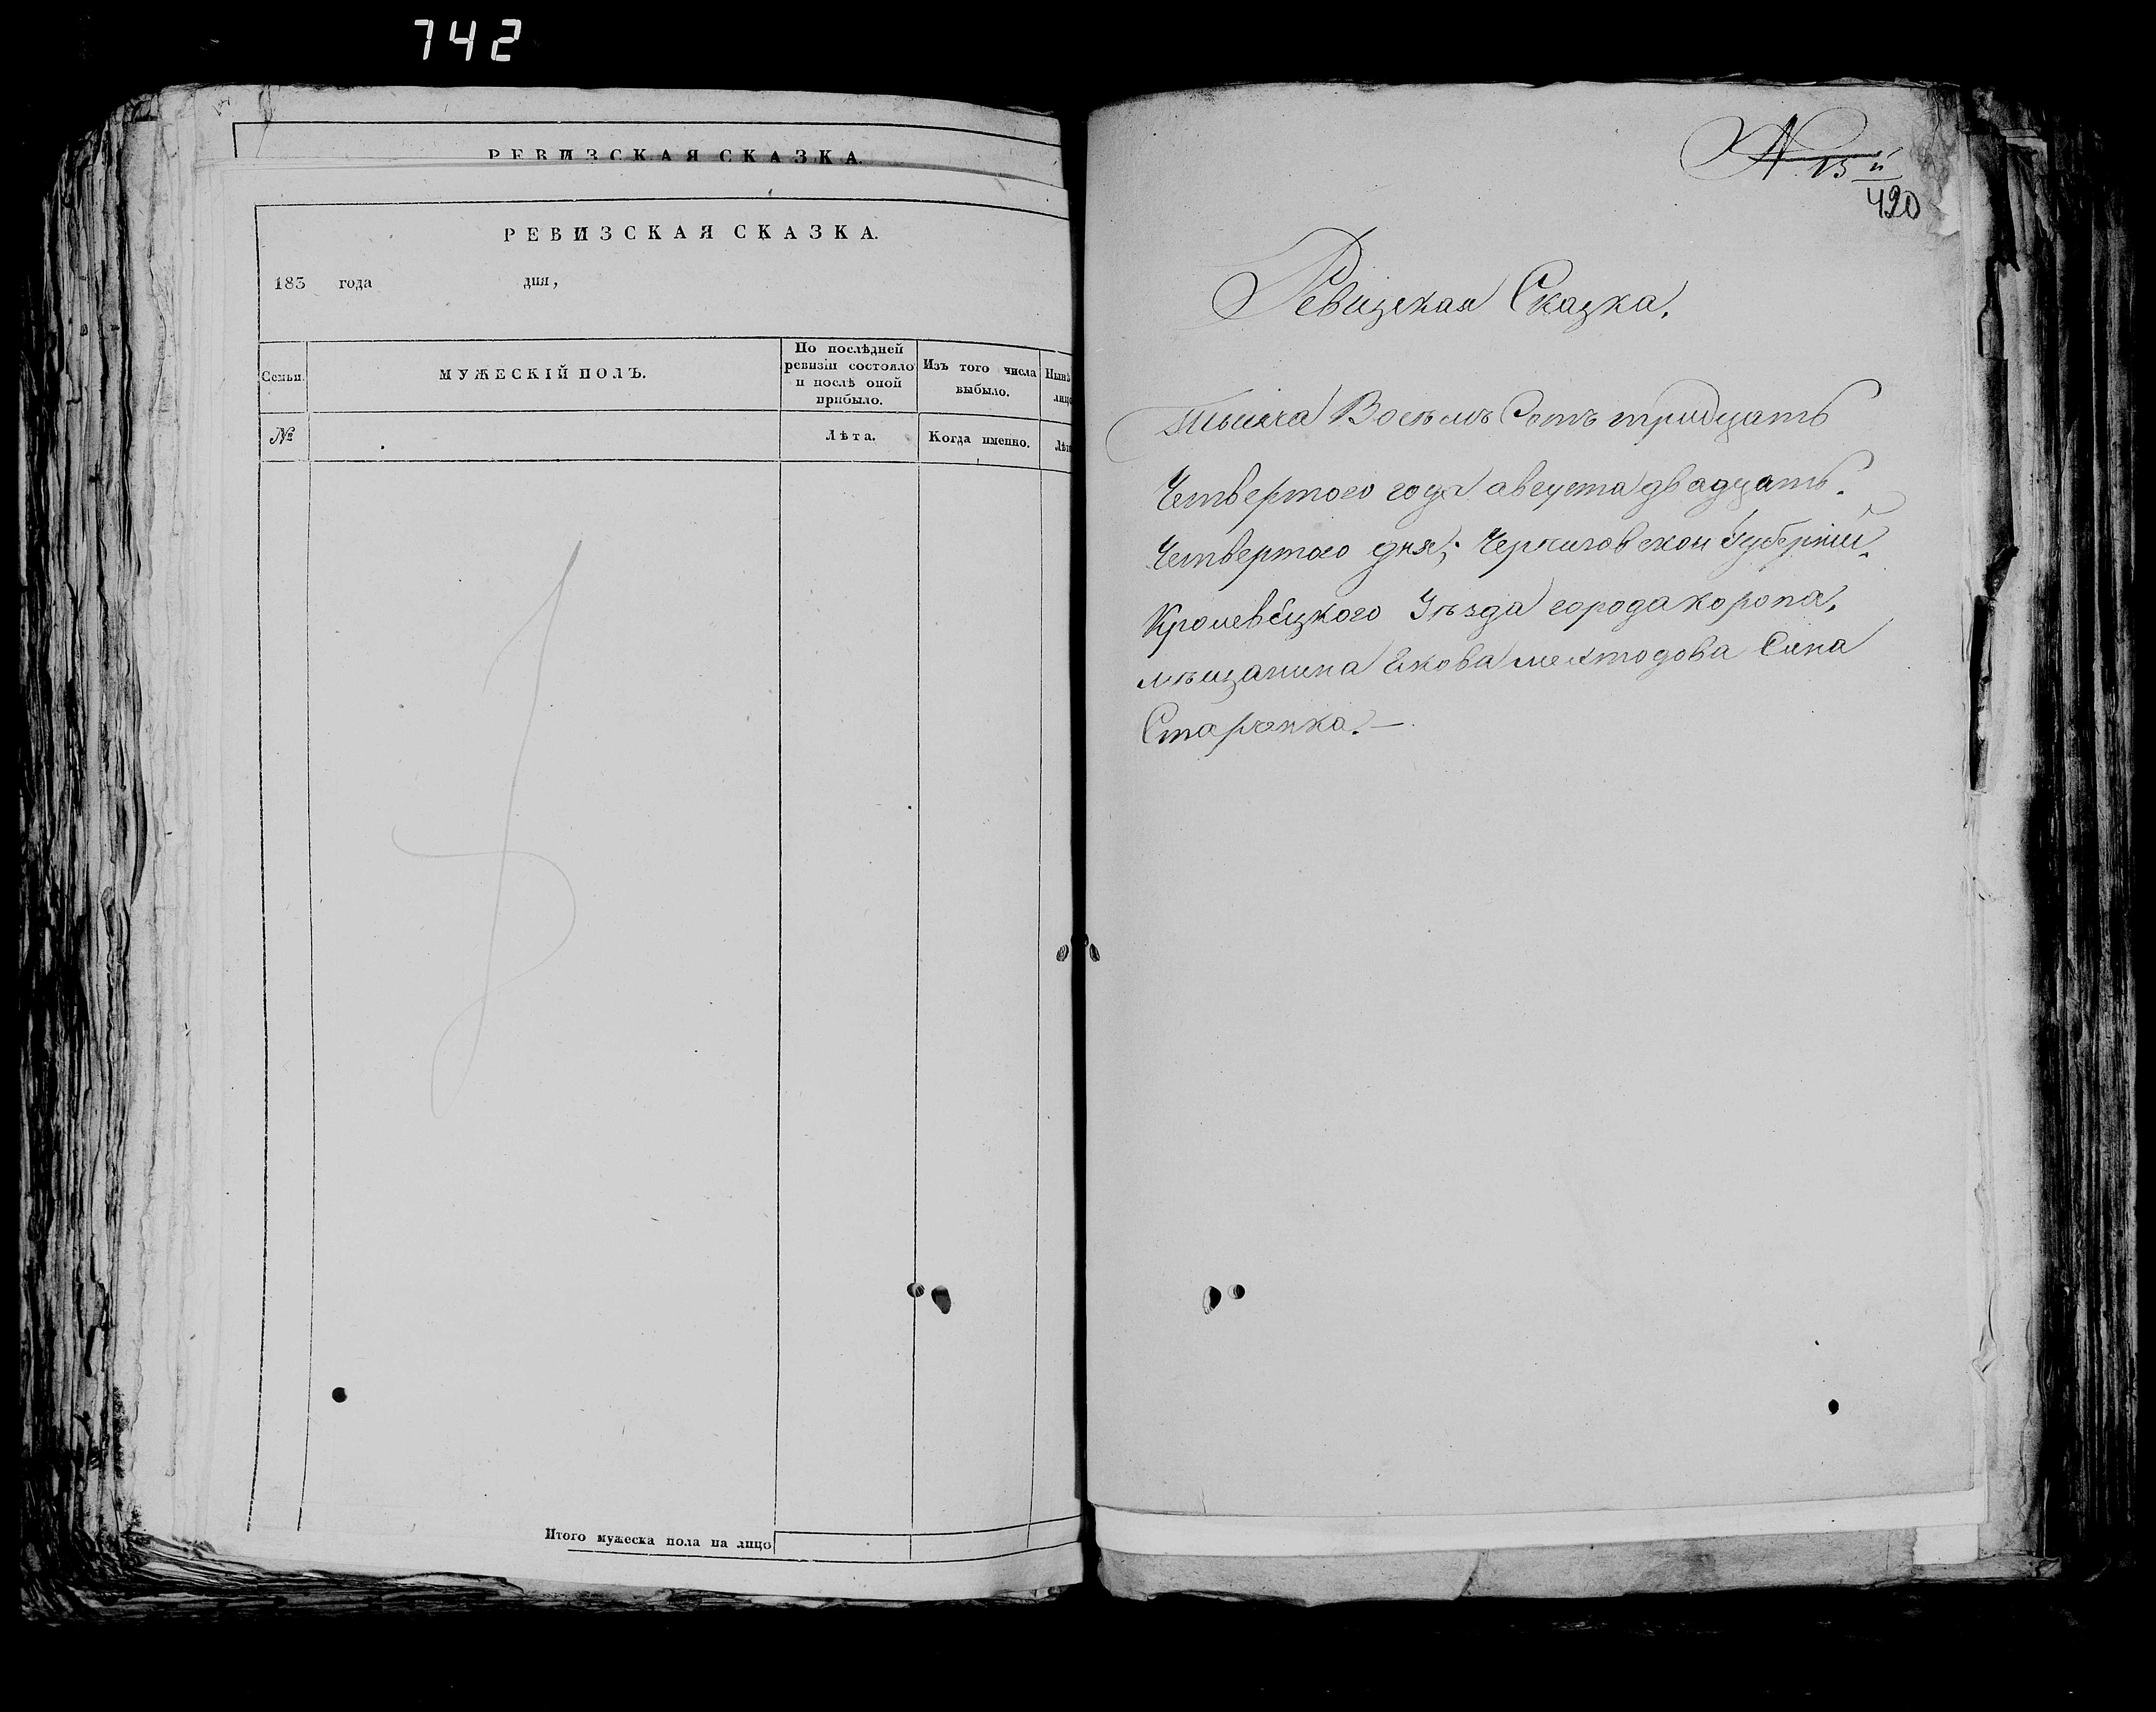 742
РЕВИЗСКАЯ СКАЗКА.
РЕВИЗСКАЯ СКАЗКА.
183 года дня,
Семьи. МУЖЕСКІЙ ПОЛЪ. По послѣдней ревизіи состояло и послѣ оной прибыло. Изъ того числа выбыло. Нынѣ лицо
№ Лѣта. Когда именно. Лѣт
Итого мужеска пола на лицо
№ 15 й
420
Ревизская Сказка.
тысяча Восѣмъ Сотъ тридцать
Четвертого года августа двадцать.
Четвертого дня; Черниговской Губерніи.
Кролевецкого Уѣзда города коропа,
мѣщанина Якова мефтодова Сина